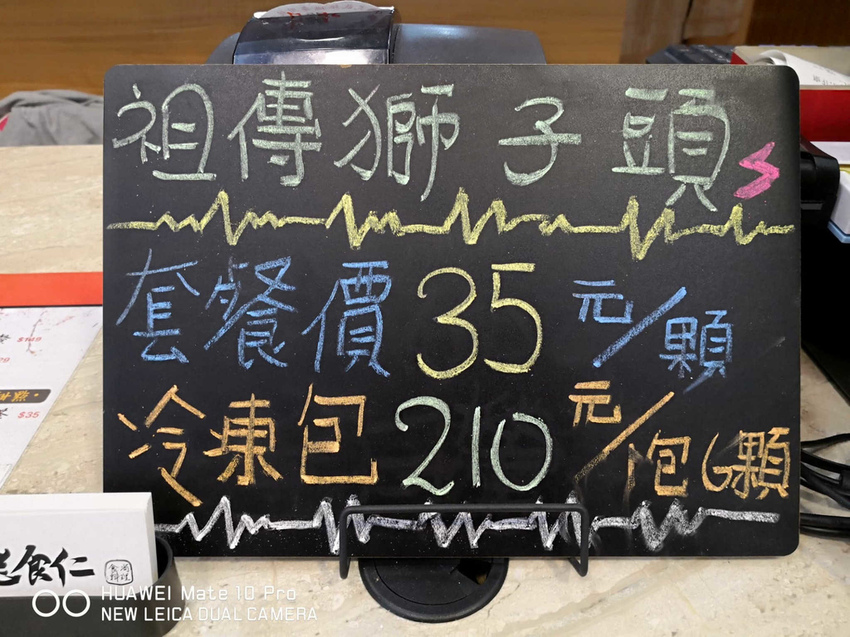 祖傳獅子頭
套餐價35元/顆
冷凍包210元/包6顆
$35
食仁
HUAWEI Mate 10 Pro
NEW LEICA DUAL CAMERA